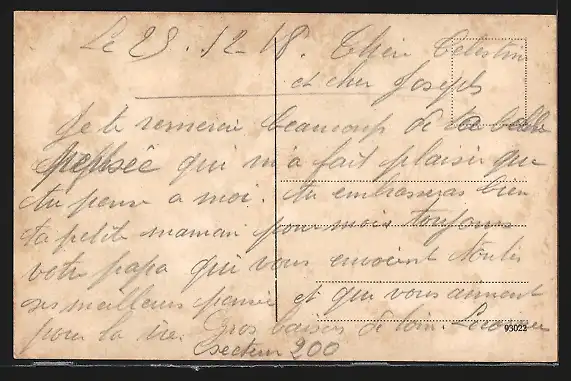 Le 29.12-18. Chère Célestine
et cher Joseph
Je te remercie beaucoup de ta belle
pensée qui m'a fait plaisir que
tu pense a moi. Tu embrasseras bien
ta petite maman pour moi toujours
votre papa qui vous envoient toutes
ses meilleurs pensée et que vous aiment
pour la vie. Gros baisers de loin.
secteur 200
93022